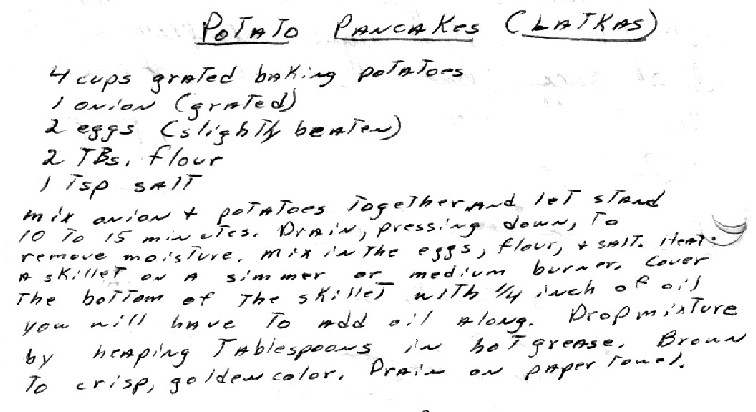 Potato Pancakes (Latkas)
4 cups grated baking potatoes
1 onion (grated)
2 eggs (slightly beaten)
2 TBs. flour
1 Tsp salt
mix onion + potatoes together and let stand
10 To 15 minutes. Drain, pressing down, To
remove moisture. mix in the eggs, flour, + salt. Heat
a skillet on a simmer or medium burner. Cover
The bottom of The skillet with 1/4 inch of oil
you will have To add oil along. Drop mixture
by heaping Tablespoons in hot grease. Brown
To crisp, golden color. Drain on paper Towel.